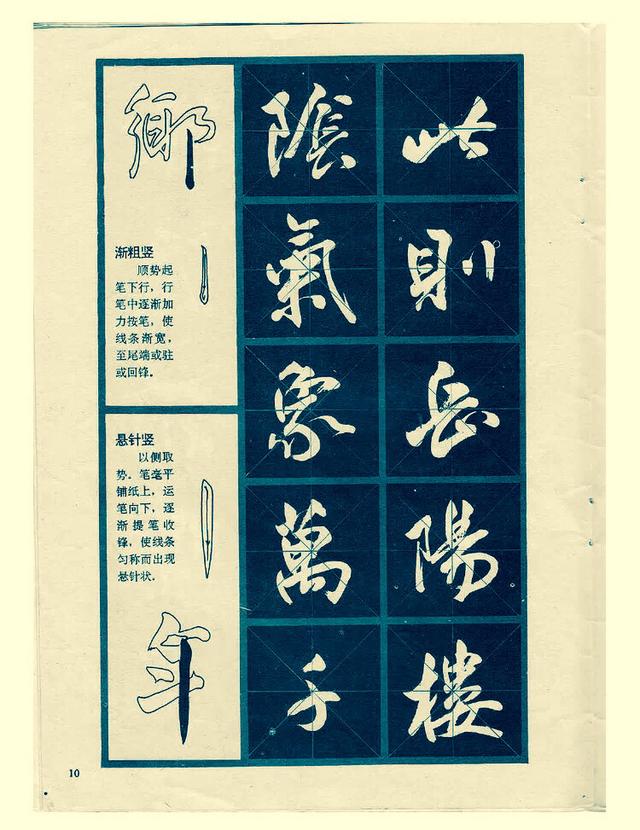 此則岳陽樓
陰氣象萬千
鄉
渐粗竖
顺势起
笔下行，行
笔中逐渐加
力按笔，使
线条渐宽，
至尾端或驻
或回锋。
悬针竖
以侧取
势。笔毫平
铺纸上，运
笔向下，逐
渐提笔收
锋，使线条
匀称而出现
悬针状。
年
10